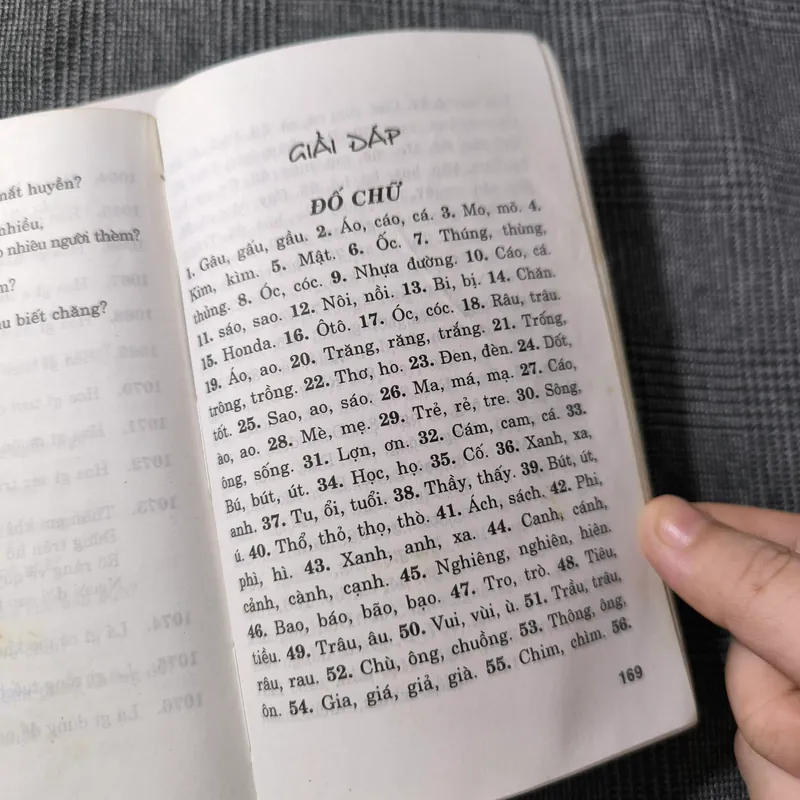 mất huyền?
nhiều,
nhiêu người thèm?
biết chăng?
GIẢI ĐÁP
ĐỐ CHỮ
1. Gâu, gấu, gầu. 2. Áo, cáo, cá. 3. Mo, mõ. 4.
Kim, kìm. 5. Mật. 6. Ốc. 7. Thúng, thùng,
thủng. 8. Óc, cóc. 9. Nhựa đường. 10. Cáo, cá.
11. sáo, sao. 12. Nôi, nồi. 13. Bi, bị. 14. Chăn.
15. Honda. 16. Ôtô. 17. Óc, cóc. 18. Râu, trâu.
19. Áo, ao. 20. Trăng, răng, trắng. 21. Trống,
trông, trồng. 22. Thơ, ho. 23. Đen, đèn. 24. Dốt,
tốt. 25. Sao, ao, sáo. 26. Ma, má, mạ. 27. Cáo,
ào, ao. 28. Mè, mẹ. 29. Trẻ, rẻ, tre. 30. Sông,
ông, sống. 31. Lợn, ơn. 32. Cám, cam, cá. 33.
Bú, bút, út. 34. Học, họ. 35. Cố. 36. Xanh, xa,
anh. 37. Tu, ổi, tuổi. 38. Thầy, thấy. 39. Bút, út,
ú. 40. Thổ, thỏ, thọ, thò. 41. Ách, sách. 42. Phi,
phì, hì. 43. Xanh, anh, xa. 44. Canh, cánh,
cảnh, cành, cạnh. 45. Nghiêng, nghiên, hiên.
46. Bao, báo, bão, bạo. 47. Tro, trò. 48. Tiêu,
tiều. 49. Trâu, âu. 50. Vui, vùi, ù. 51. Trầu, trâu,
râu, rau. 52. Chù, ông, chuồng. 53. Thông, ông,
ôn. 54. Gia, giá, giả, già. 55. Chim, chìm. 56.
169